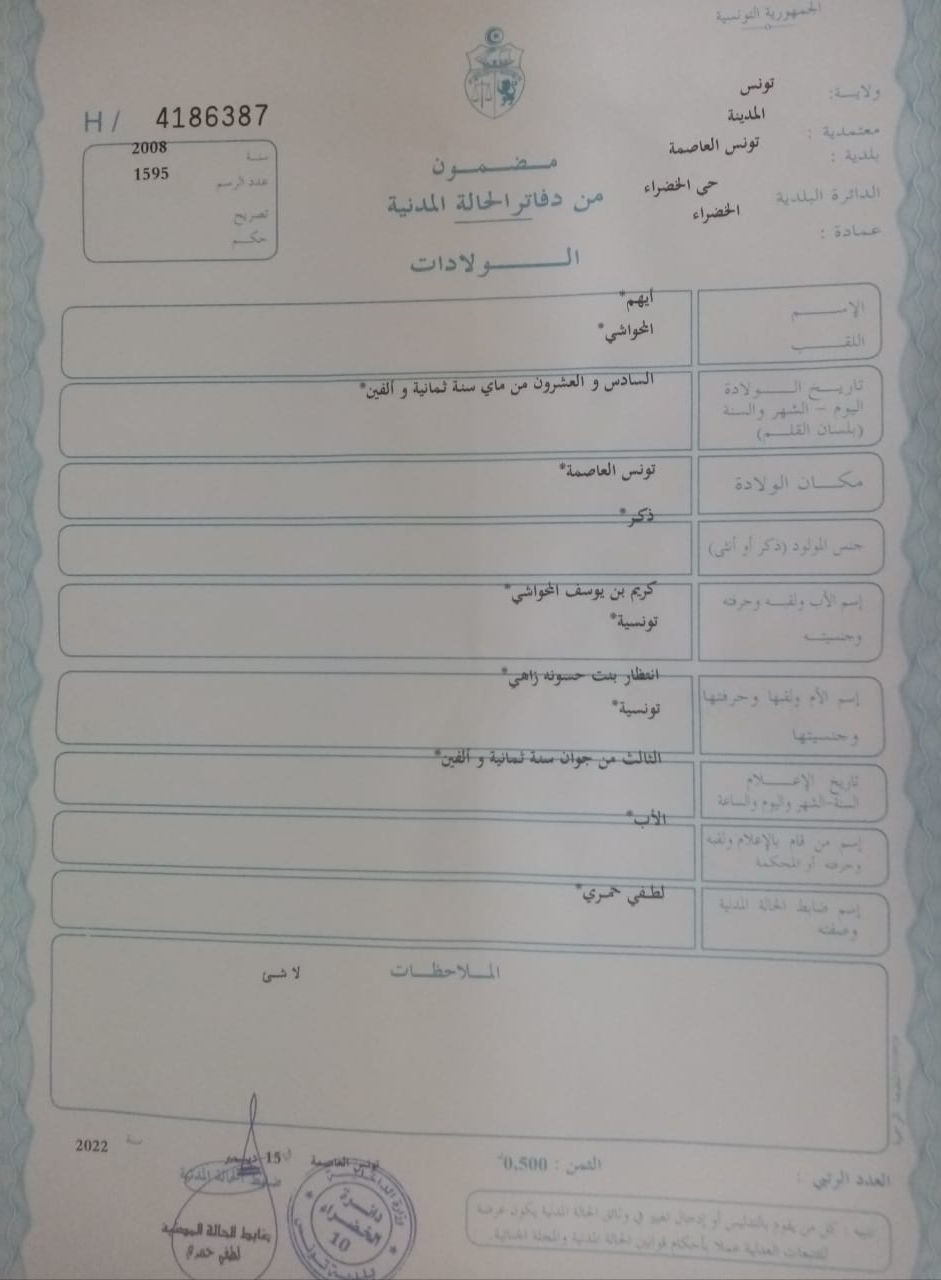 الجمهورية التونسية
ولاية: تونس
معتمدية : المدينة
بلدية : تونس العاصمة
الدائرة البلدية حى الخضراء
عمادة : الخضراء
H / 4186387
سنة 2008
عدد الرسم 1595
تصريح
حكم
مضمون
من دفاتر الحالة المدنية
الولادات
الإسم أيهم*
اللقب المحواشي*
تاريخ الولادة السادس و العشرون من ماي سنة ثمانية و ألفين*
اليوم - الشهر والسنة
(بلسان القلم)
مكان الولادة تونس العاصمة*
جنس المولود (ذكر أو أنثى) ذكر*
إسم الأب ولقبه وحرفته كريم بن يوسف المحواشي*
وجنسيته تونسية*
إسم الأم ولقبها وحرفتها انتظار بنت حسونه زاهي*
وجنسيتها تونسية*
تاريخ الإعلام الثالث من جوان سنة ثمانية و ألفين*
السنة-الشهر واليوم والساعة
إسم من قام بالإعلام ولقبه الأب*
وحرفته أو المحكمة
إسم ضابط الحالة المدنية لطفي حمري*
وصفته
الملاحظات
لا شئ
العدد الرتبي :
الثمن : 0,500
تنبيه : كل من يقوم بالتدليس أو إدخال تغيير في وثائق الحالة المدنية يكون عرضة
للتتبعات العدلية عملا بأحكام قوانين الحالة المدنية والمجلة الجنائية.
تونس العاصمة في 15 ديسمبر سنة 2022
ضابط الحالة المدنية
ضابط الحالة المدنية
لطفي حمري
وزارة الداخلية
دائرة
الخضراء
10
بلدية تونس